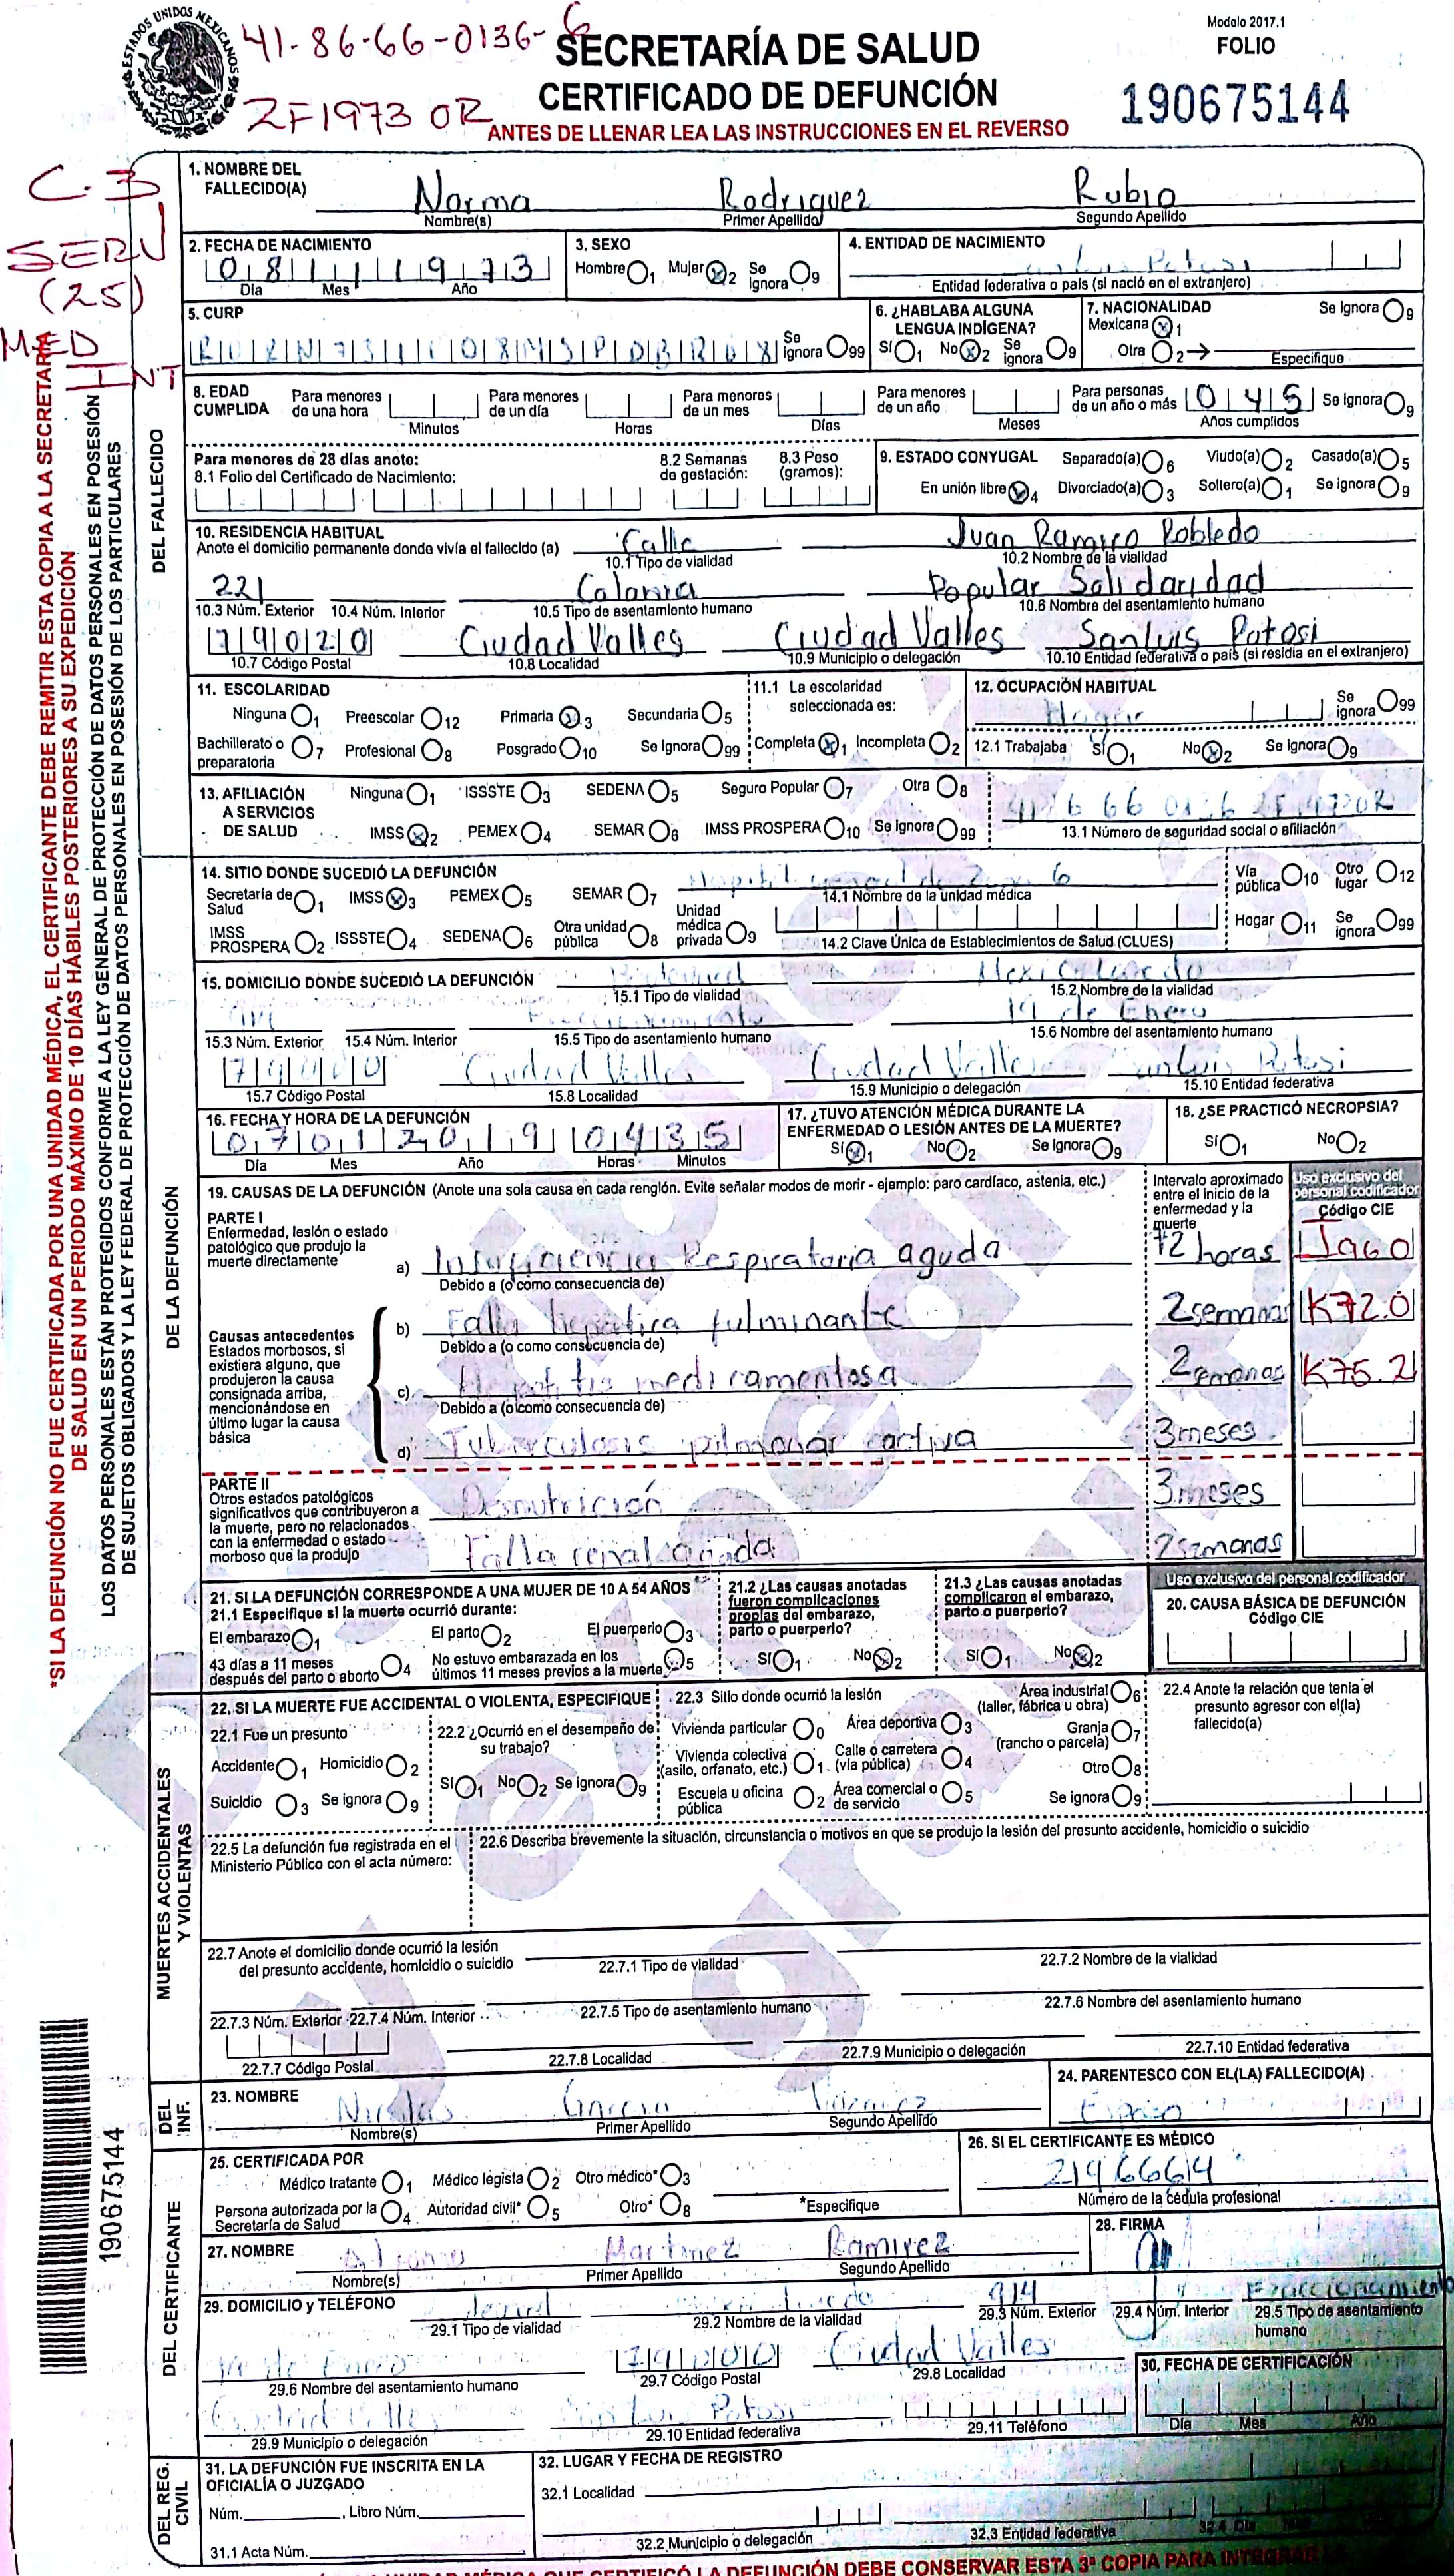 ESTADOS UNIDOS MEXICANOS
41-86-66-0136-6
2F1973 OR
SECRETARÍA DE SALUD
CERTIFICADO DE DEFUNCIÓN
ANTES DE LLENAR LEA LAS INSTRUCCIONES EN EL REVERSO
Modelo 2017.1
FOLIO
190675144
C.3
SERV
(25)
MED
INT
*SI LA DEFUNCIÓN NO FUE CERTIFICADA POR UNA UNIDAD MÉDICA, EL CERTIFICANTE DEBE REMITIR ESTA COPIA A LA SECRETARÍA
DE SALUD EN UN PERIODO MÁXIMO DE 10 DÍAS HÁBILES POSTERIORES A SU EXPEDICIÓN
LOS DATOS PERSONALES ESTÁN PROTEGIDOS CONFORME A LA LEY GENERAL DE PROTECCIÓN DE DATOS PERSONALES EN POSESIÓN
DE SUJETOS OBLIGADOS Y LA LEY FEDERAL DE PROTECCIÓN DE DATOS PERSONALES EN POSESIÓN DE LOS PARTICULARES
190675144
DEL FALLECIDO
1. NOMBRE DEL FALLECIDO(A) Norma Rodriguez Rubio
Nombre(s) Primer Apellido Segundo Apellido
2. FECHA DE NACIMIENTO 08 11 1973
Día Mes Año
3. SEXO
Hombre 1 Mujer x 2 Se ignora 9
4. ENTIDAD DE NACIMIENTO Potosi
Entidad federativa o país (si nació en el extranjero)
5. CURP
Se ignora 99
6. ¿HABLABA ALGUNA LENGUA INDÍGENA?
Sí 1 No x 2 Se ignora 9
7. NACIONALIDAD Se Ignora 9
Mexicana x 1
Otra 2 → Especifique
8. EDAD CUMPLIDA
Para menores de una hora Minutos
Para menores de un día Horas
Para menores de un mes Días
Para menores de un año Meses
Para personas de un año o más 045 Años cumplidos Se Ignora 9
Para menores de 28 días anote:
8.1 Folio del Certificado de Nacimiento:
8.2 Semanas de gestación:
8.3 Peso (gramos):
9. ESTADO CONYUGAL Separado(a) 6 Viudo(a) 2 Casado(a) 5
En unión libre x 4 Divorciado(a) 3 Soltero(a) 1 Se ignora 9
10. RESIDENCIA HABITUAL
Anote el domicilio permanente donde vivía el fallecido (a) Calle Juan Ramiro Robledo
10.1 Tipo de vialidad 10.2 Nombre de la vialidad
221 Colonia Popular Solidaridad
10.3 Núm. Exterior 10.4 Núm. Interior 10.5 Tipo de asentamiento humano 10.6 Nombre del asentamiento humano
79020 Ciudad Valles Ciudad Valles San Luis Potosi
10.7 Código Postal 10.8 Localidad 10.9 Municipio o delegación 10.10 Entidad federativa o país (si residía en el extranjero)
11. ESCOLARIDAD
Ninguna 1 Preescolar 12 Primaria x 3 Secundaria 5
Bachillerato o preparatoria 7 Profesional 8 Posgrado 10 Se Ignora 99
11.1 La escolaridad seleccionada es:
Completa x 1 Incompleta 2
12. OCUPACIÓN HABITUAL
Hogar Se ignora 99
12.1 Trabajaba Sí 1 No x 2 Se Ignora 9
13. AFILIACIÓN A SERVICIOS DE SALUD
Ninguna 1 ISSSTE 3 SEDENA 5 Seguro Popular 7 Otra 8
IMSS x 2 PEMEX 4 SEMAR 6 IMSS PROSPERA 10 Se Ignora 99
13.1 Número de seguridad social o afiliación
DE LA DEFUNCIÓN
14. SITIO DONDE SUCEDIÓ LA DEFUNCIÓN
Secretaría de Salud 1 IMSS x 3 PEMEX 5 SEMAR 7
IMSS PROSPERA 2 ISSSTE 4 SEDENA 6 Otra unidad pública 8 Unidad médica privada 9
Hospital general de Zona 6
14.1 Nombre de la unidad médica
14.2 Clave Única de Establecimientos de Salud (CLUES)
Vía pública 10 Otro lugar 12
Hogar 11 Se ignora 99
15. DOMICILIO DONDE SUCEDIÓ LA DEFUNCIÓN
15.1 Tipo de vialidad 15.2 Nombre de la vialidad
19 de Enero
15.3 Núm. Exterior 15.4 Núm. Interior 15.5 Tipo de asentamiento humano 15.6 Nombre del asentamiento humano
Ciudad Valles Ciudad Valles San Luis Potosi
15.7 Código Postal 15.8 Localidad 15.9 Municipio o delegación 15.10 Entidad federativa
16. FECHA Y HORA DE LA DEFUNCIÓN
07 01 2019 04 35
Día Mes Año Horas Minutos
17. ¿TUVO ATENCIÓN MÉDICA DURANTE LA ENFERMEDAD O LESIÓN ANTES DE LA MUERTE?
Sí x 1 No 2 Se Ignora 9
18. ¿SE PRACTICÓ NECROPSIA?
Sí 1 No 2
19. CAUSAS DE LA DEFUNCIÓN (Anote una sola causa en cada renglón. Evite señalar modos de morir - ejemplo: paro cardíaco, astenia, etc.)
Intervalo aproximado entre el inicio de la enfermedad y la muerte
Uso exclusivo del personal codificador
Código CIE
PARTE I
Enfermedad, lesión o estado patológico que produjo la muerte directamente
a) Insuficiencia Respiratoria aguda 72 horas J960
Debido a (o como consecuencia de)
Causas antecedentes
Estados morbosos, si existiera alguno, que produjeron la causa consignada arriba, mencionándose en último lugar la causa básica
b) Falla hepatica fulminante 2 semanas K72.0
Debido a (o como consecuencia de)
c) Hepatitis medicamentosa 2 semanas K75.2
Debido a (o como consecuencia de)
d) Tuberculosis pulmonar activa 3 meses
PARTE II
Otros estados patológicos significativos que contribuyeron a la muerte, pero no relacionados con la enfermedad o estado morboso que la produjo
Desnutrición 3 meses
Falla renal aguda 2 semanas
21. SI LA DEFUNCIÓN CORRESPONDE A UNA MUJER DE 10 A 54 AÑOS
21.1 Especifique si la muerte ocurrió durante:
El embarazo 1 El parto 2 El puerperio 3
43 días a 11 meses después del parto o aborto 4
No estuvo embarazada en los últimos 11 meses previos a la muerte 5
21.2 ¿Las causas anotadas fueron complicaciones propias del embarazo, parto o puerperio?
Sí 1 No x 2
21.3 ¿Las causas anotadas complicaron el embarazo, parto o puerperio?
Sí 1 No x 2
Uso exclusivo del personal codificador
20. CAUSA BÁSICA DE DEFUNCIÓN
Código CIE
MUERTES ACCIDENTALES Y VIOLENTAS
22. SI LA MUERTE FUE ACCIDENTAL O VIOLENTA, ESPECIFIQUE
22.1 Fue un presunto
Accidente 1 Homicidio 2
Suicidio 3 Se ignora 9
22.2 ¿Ocurrió en el desempeño de su trabajo?
Sí 1 No 2 Se ignora 9
22.3 Sitio donde ocurrió la lesión
Vivienda particular 0 Área deportiva 3 Área industrial (taller, fábrica u obra) 6
Vivienda colectiva (asilo, orfanato, etc.) 1 Calle o carretera (vía pública) 4 Granja (rancho o parcela) 7
Escuela u oficina pública 2 Área comercial o de servicio 5 Otro 8
Se ignora 9
22.4 Anote la relación que tenía el presunto agresor con el(la) fallecido(a)
22.5 La defunción fue registrada en el Ministerio Público con el acta número:
22.6 Describa brevemente la situación, circunstancia o motivos en que se produjo la lesión del presunto accidente, homicidio o suicidio
22.7 Anote el domicilio donde ocurrió la lesión del presunto accidente, homicidio o suicidio
22.7.1 Tipo de vialidad 22.7.2 Nombre de la vialidad
22.7.3 Núm. Exterior 22.7.4 Núm. Interior 22.7.5 Tipo de asentamiento humano 22.7.6 Nombre del asentamiento humano
22.7.7 Código Postal 22.7.8 Localidad 22.7.9 Municipio o delegación 22.7.10 Entidad federativa
DEL INF.
23. NOMBRE Nicolas Garcia
Nombre(s) Primer Apellido Segundo Apellido
24. PARENTESCO CON EL(LA) FALLECIDO(A)
Esposo
DEL CERTIFICANTE
25. CERTIFICADA POR
Médico tratante 1 Médico legista 2 Otro médico* 3
Persona autorizada por la Secretaría de Salud 4 Autoridad civil* 5 Otro* 8 *Especifique
26. SI EL CERTIFICANTE ES MÉDICO
2196664
Número de la cédula profesional
27. NOMBRE Martinez Ramirez
Nombre(s) Primer Apellido Segundo Apellido
28. FIRMA
29. DOMICILIO y TELÉFONO 914 Fraccionamiento
29.1 Tipo de vialidad 29.2 Nombre de la vialidad 29.3 Núm. Exterior 29.4 Núm. Interior 29.5 Tipo de asentamiento humano
19 de Enero 79000 Ciudad Valles
29.6 Nombre del asentamiento humano 29.7 Código Postal 29.8 Localidad
Ciudad Valles San Luis Potosi
29.9 Municipio o delegación 29.10 Entidad federativa 29.11 Teléfono
30. FECHA DE CERTIFICACIÓN
Día Mes Año
DEL REG. CIVIL
31. LA DEFUNCIÓN FUE INSCRITA EN LA OFICIALÍA O JUZGADO
Núm. , Libro Núm.
31.1 Acta Núm.
32. LUGAR Y FECHA DE REGISTRO
32.1 Localidad
32.2 Municipio o delegación 32.3 Entidad federativa
CERTIFICÓ LA DEFUNCIÓN DEBE CONSERVAR ESTA 3ª COPIA PARA